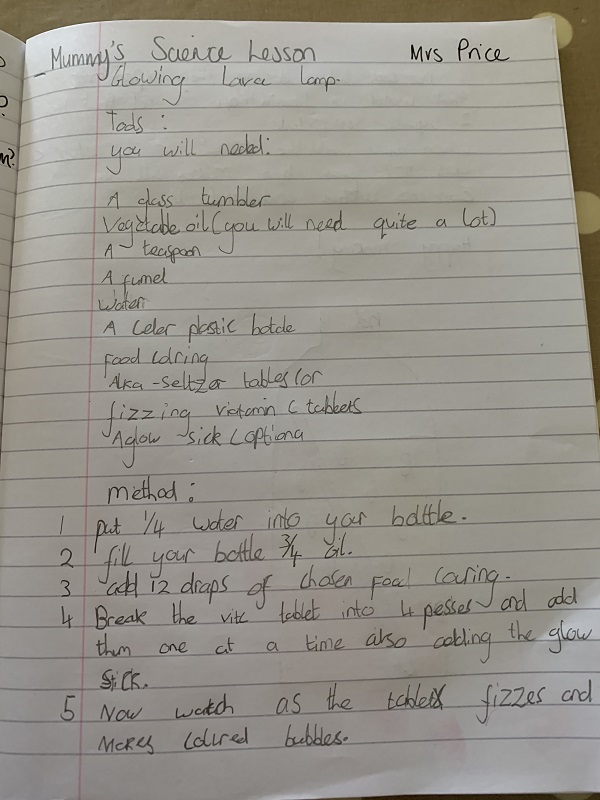 Mummy's Science Lesson Mrs Price
Glowing Lava lamp.
Tools :
you will needed:
A glass tumbler
Vegetable oil (you will need quite a lot)
A teaspoon
A funnel
Water
A Celer plastic botde
Food Coring
Alka-Seltzer tables (or
fizzing victamin C tablets
A glow -sick (optiona
method :
1 put 1/4 water into your bottle.
2 fill your bottle 3/4 oil.
3 add 12 draps of chosen Food Couring.
4 Break the vitc tablet into 4 pesses and add
them one at a time also adding the glow
Stick.
5 Now watch as the tablet fizzes and
Makes Coloured bubbles.
?
m?